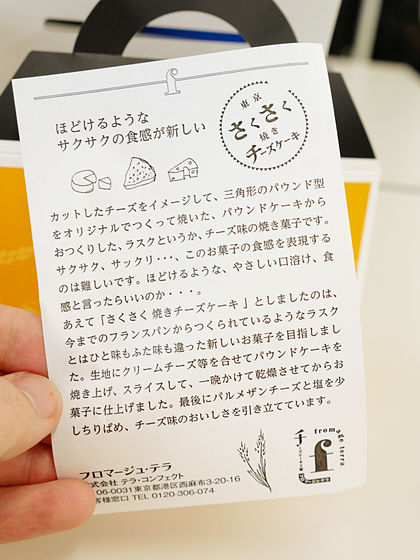 f
ほどけるような
サクサクの食感が新しい
東京
さくさく
焼き
チーズケーキ
カットしたチーズをイメージして、三角形のパウンド型
をオリジナルでつくって焼いた、パウンドケーキから
おつくりした、ラスクというか、チーズ味の焼き菓子です。
サクサク、サックリ・・・、このお菓子の食感を表現する
のは難しいです。ほどけるような、やさしい口溶け、食
感と言ったらいいのか・・・。
あえて「さくさく 焼きチーズケーキ」としましたのは、
今までのフランスパンからつくられているようなラスク
とはひと味もふた味も違った新しいお菓子を目指しまし
た。生地にクリームチーズ等を合せてパウンドケーキを
焼き上げ、スライスして、一晩かけて乾燥させてからお
菓子に仕上げました。最後にパルメザンチーズと塩を少
しちりばめ、チーズ味のおいしさを引き立てています。
フロマージュ・テラ
式会社 テラ・コンフェクト
06-0031東京都港区西麻布3-20-16
客様窓口 TEL 0120-306-074
fromage terra
f